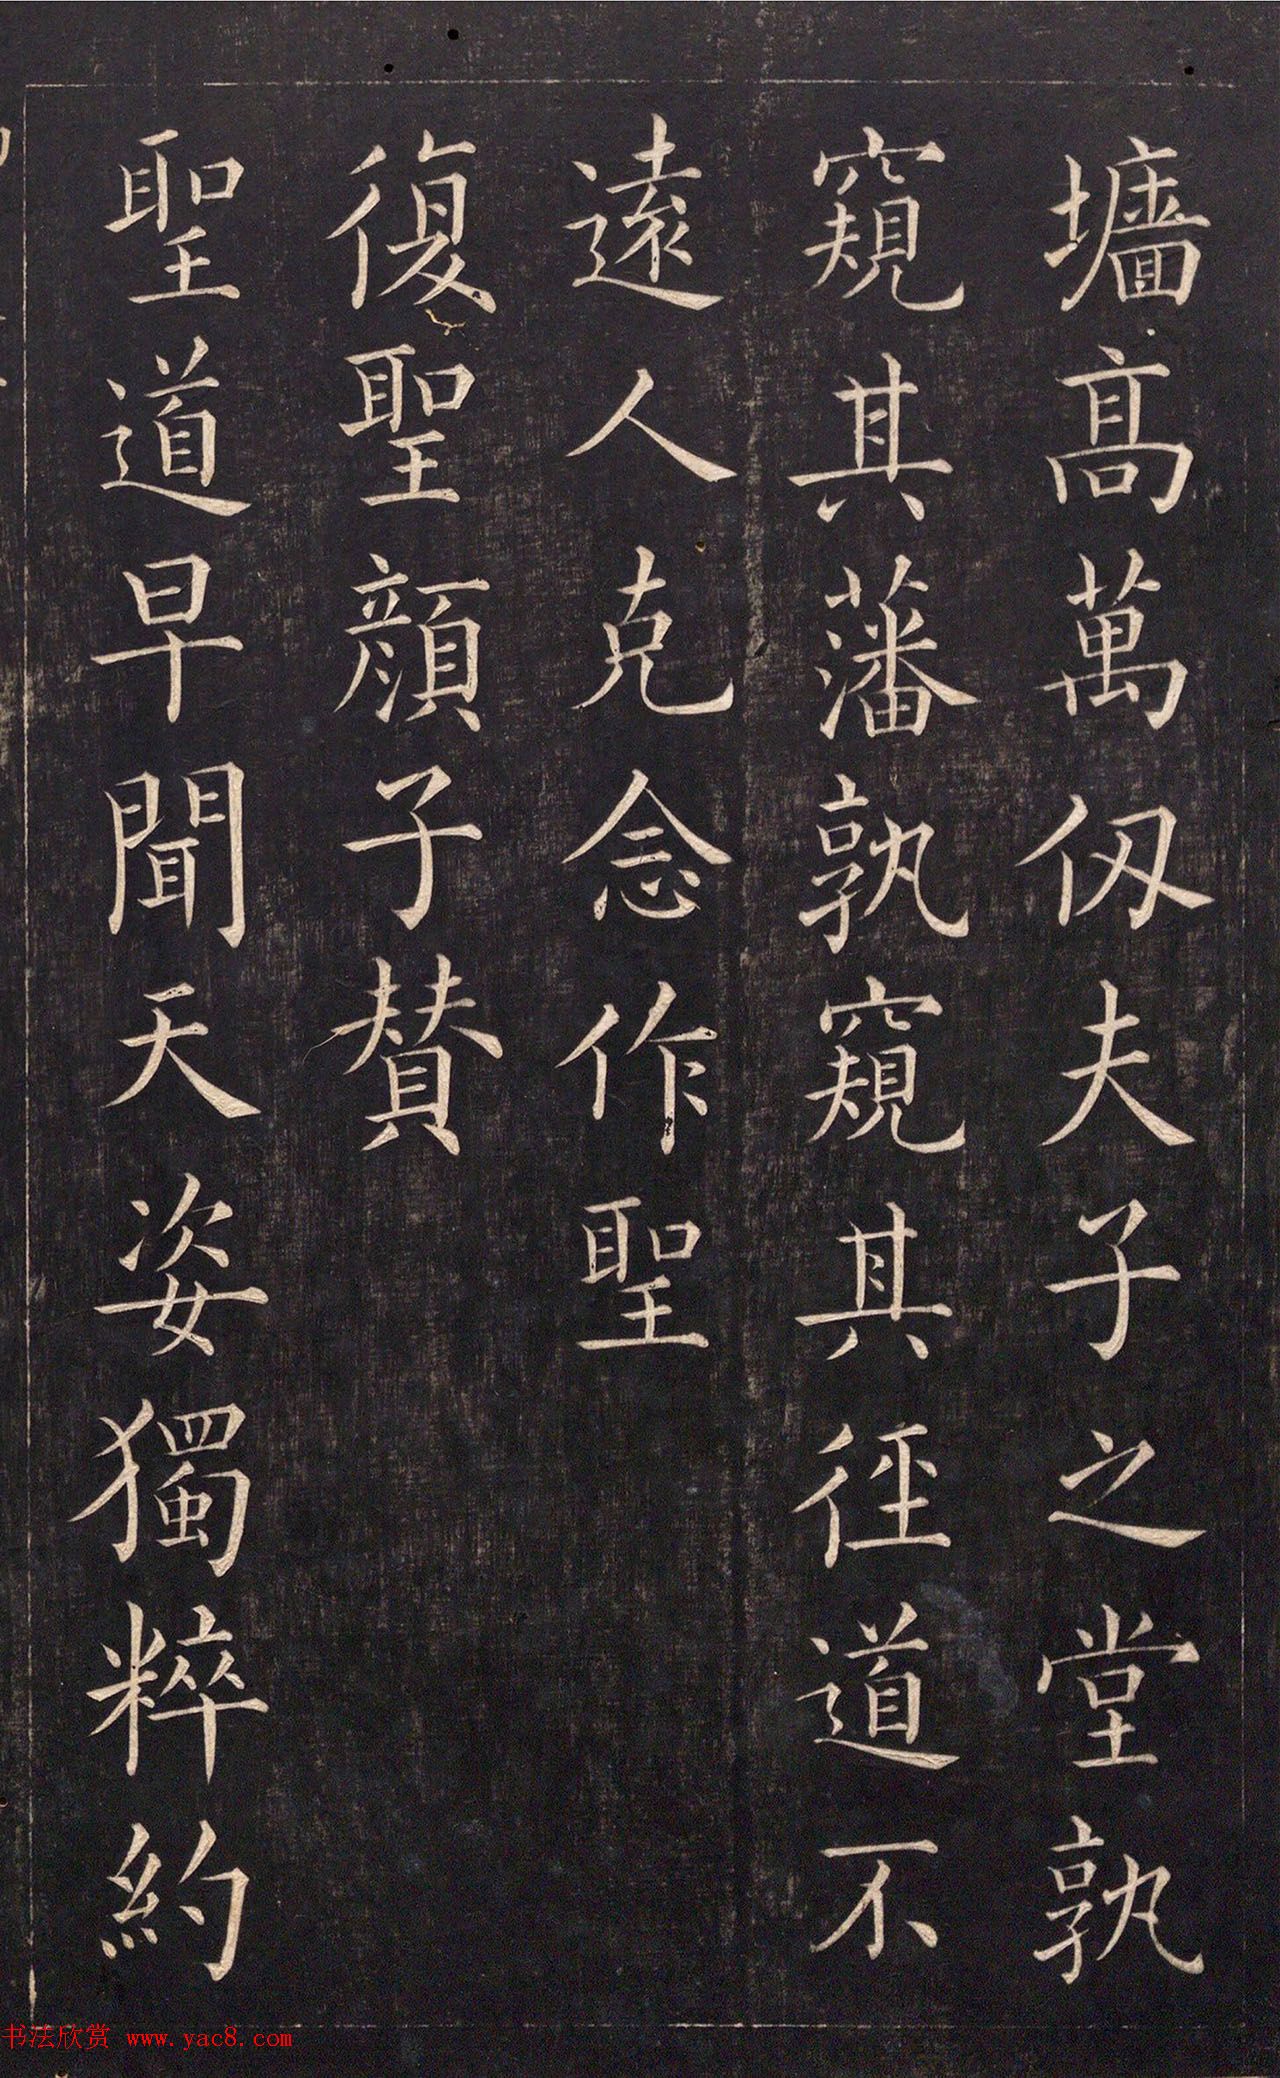 墻高萬仭夫子之堂孰
窺其藩孰窺其徑道不
遠人克念作聖
復聖顏子贊
聖道早聞天姿獨粹約
书法欣赏 www.yac8.com